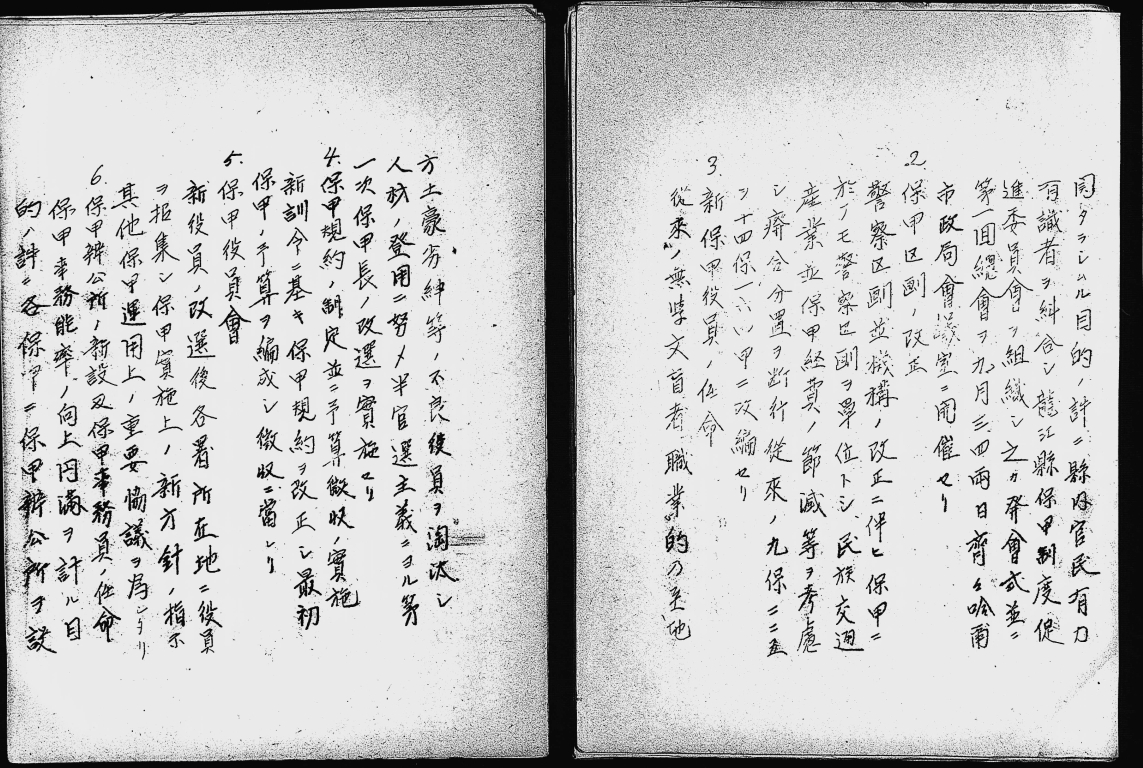 同タラシムル目的ノ許ニ縣内官民有力
有識者ヲ糾合シ龍江縣保甲制度促
進委員會ヲ組織シ之ガ発會式並ニ
第一囬總會ヲ九月三、四兩日齊々哈爾
市政局會議室ニ開催セリ
2. 保甲区劃ノ改正
警察区劃並機構ノ改正ニ伴ヒ保甲ニ
於テモ警察区劃ヲ單位トシ、民族交通
産業並保甲経費ノ節減等ヲ考慮
シ癈合分置ヲ断行從來ノ九保二三五
ヲ十四保一八八甲ニ改編セリ
3. 新保甲役員ノ任命
從来ノ無学文盲者職業的乃至地
方土豪劣紳等ノ不良役員ヲ淘汰シ
人材ノ登用ニ努メ半官選主義ニヨル第
一次保甲長ノ改選ヲ實施セリ
4. 保甲規約ノ制定並ニ予算徴収ノ實施
新訓令ニ基キ保甲規約ヲ改正シ最初
保甲ノ予算ヲ編成シ徴収ニ當レリ
5. 保甲役員會
新役員ノ改選後各署所在地ニ役員
ヲ招集シ保甲實施上ノ新方針ノ指示
其他保甲運用上ノ重要協議ヲ為シタリ
6. 保甲辨公所ノ新設及保甲事務員ノ任命
保甲事務能率ノ向上円滿ヲ計ル目
的ノ許ニ各保甲ニ保甲辨公所ヲ設